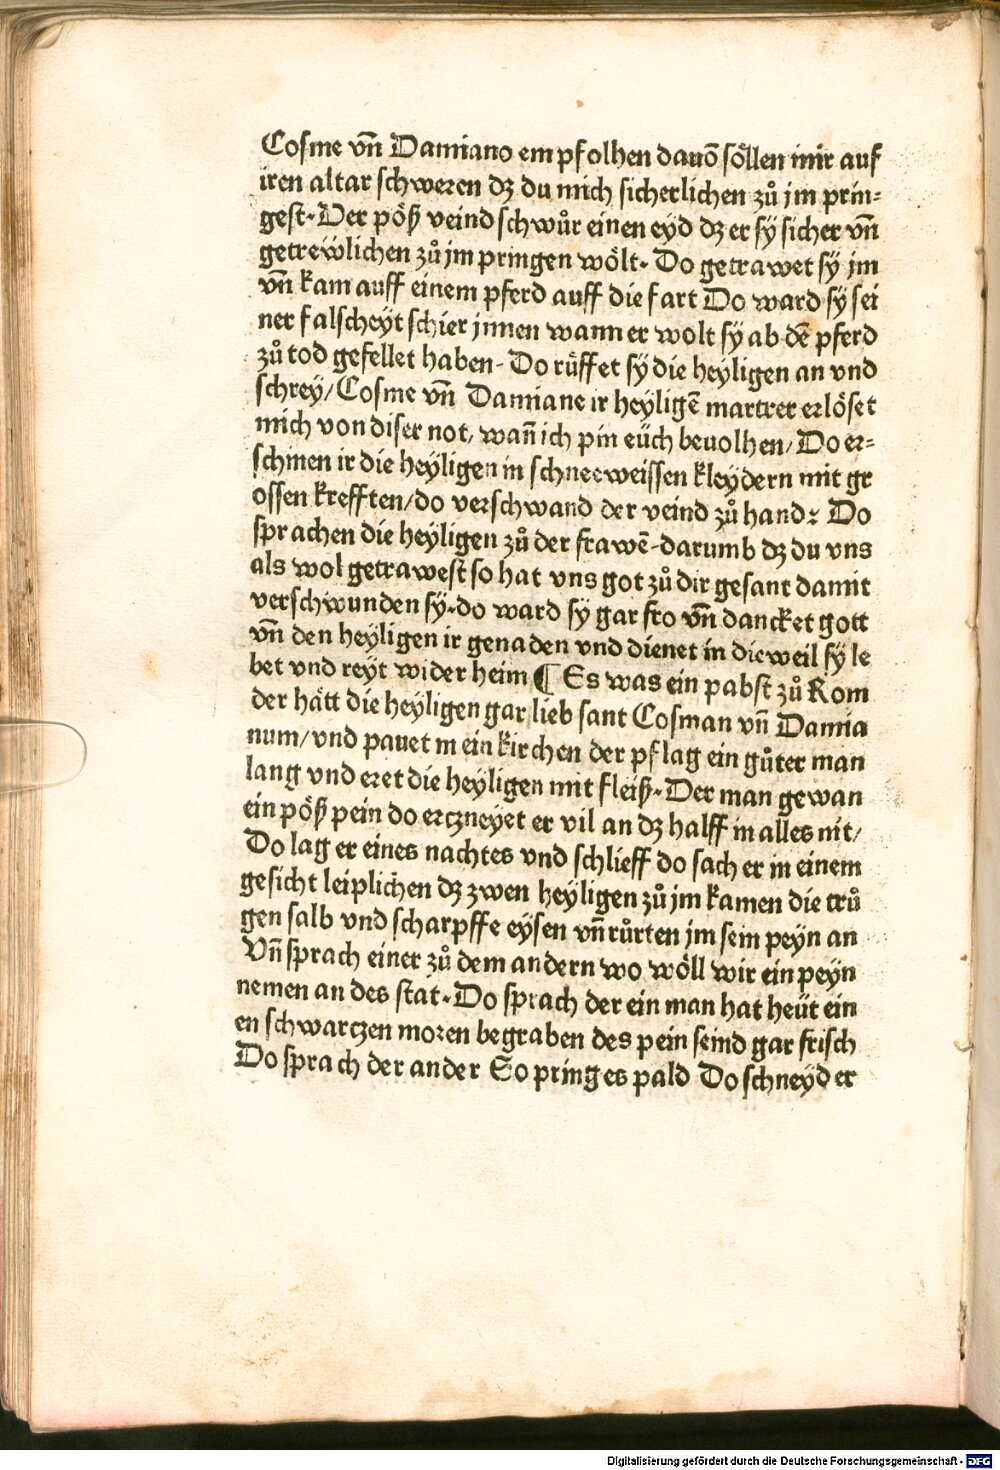 Cosme vn̄ Damiano empfolhen dauō söllen mir auf
iren altar schweren dz du mich sicherlichen zů jm prin-
gest. Der pöß veind schwůr einen eyd dz er sÿ sicher vn̄
getreẅlichen zů jm pringen wölt. Do getrawet sÿ jm
vn̄ kam auff einem pferd auff die fart Do ward sÿ sei
ner falscheÿt schier jnnen wann er wolt sÿ ab dē pferd
zů tod gefellet haben. Do růffet sÿ die heÿligen an vnd
schrey/ Cosme vn̄ Damiane ir heÿligē martrer erlöset
mich von diser not, wan̄ ich pin eüch beuolhen/ Do er-
schinen ir die heÿligen in schneeweissen kleÿdern mit gr
ossen krefften/ do verschwand der veind zů hand: Do
sprachen die heÿligen zů der frawē. darumb dz du vns
als wol getrawest so hat vns got zů dir gesant damit
verschwunden sÿ. do ward sÿ gar fro vn̄ dancket gott
vn̄ den heÿligen ir genaden vnd dienet in dieweil sÿ le
bet vnd reÿt wider heim ¶ Es was ein pabst zů Rom
der hätt die heÿligen gar lieb sant Cosman vn̄ Damia
num/ vnd pauet in ein kirchen der pflag ein gůter man
lang vnd eret die heÿligen mit fleiß. Der man gewan
ein pöß pein do erczneÿet er vil an dz halff in alles nit/
Do lag er eines nachtes vnd schlieff do sach er in einem
gesicht leiplichen dz zwen heÿligen zů jm kamen die trů
gen salb vnd scharpffe eÿsen vn̄ růrten jm sein peÿn an
Vn̄ sprach einer zů dem andern wo wöll wir ein peÿn
nemen an des stat. Do sprach der ein man hat heüt ein
en schwarczen moren begraben des pein seind gar frisch
Do sprach der ander So pring es pald Do schneÿd er
Digitalisierung gefördert durch die Deutsche Forschungsgemeinschaft - DFG